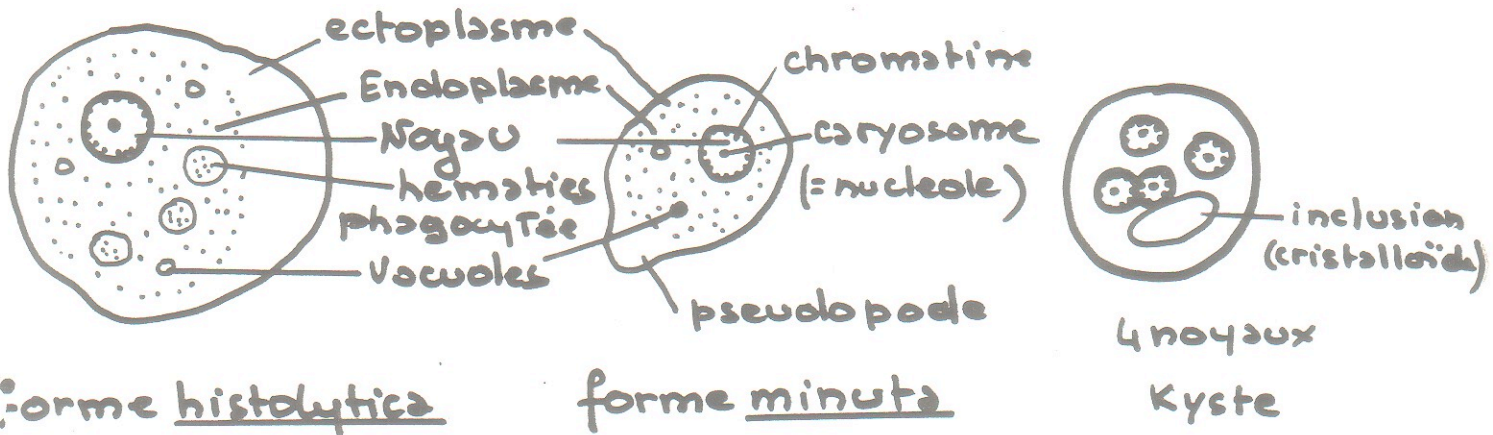 ectoplasme
Endoplasme
Noyau
hematies
phagocytée
Vacuoles
chromatine
caryosome
(=nucleole)
pseudopode
inclusion
(cristalloïde)
4 noyaux
Kyste
Forme histolytica
forme minuta